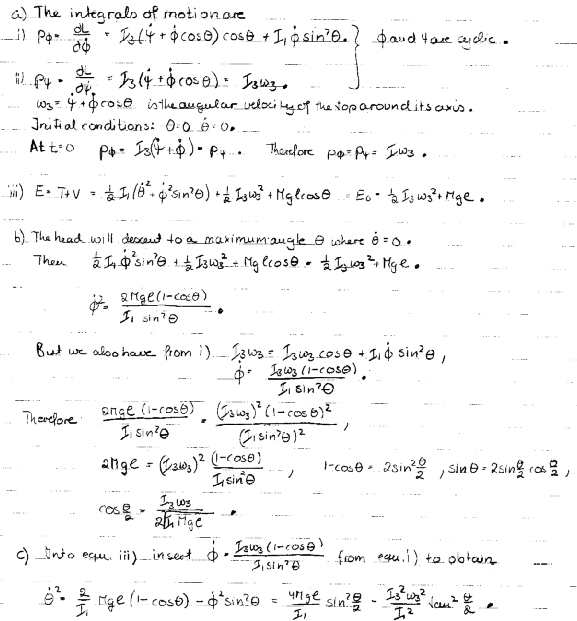 a) The integrals of motion are
i) Pϕ = ∂L/∂ϕ̇ = I₃(ψ̇ + ϕ̇cosθ) cosθ + I₁ϕ̇ sin²θ. } ϕ and ψ are cyclic.
ii) Pψ = ∂L/∂ψ̇ = I₃(ψ̇ + ϕ̇cosθ) = I₃ω₃.
ω₃ = ψ̇ + ϕ̇cosθ is the angular velocity of the top around its axis.
Initial conditions: θ=0 θ̇=0.
At t=0 Pϕ = I₃(ψ̇+ϕ̇) = Pψ. Therefore Pϕ = Pψ = Iω₃.
iii) E = T+V = ½ I₁(θ̇² + ϕ̇²sin²θ) + ½ I₃ω₃² + Mglcosθ = E₀ = ½ I₃ω₃² + Mgl.
b) The head will descend to a maximum angle θ where θ̇=0.
Then ½ I₁ϕ̇²sin²θ + ½ I₃ω₃² + Mglcosθ = ½ I₃ω₃² + Mgl.
ϕ̇² = 2Mgl(1-cosθ) / I₁ sin²θ.
But we also have from i) I₃ω₃ = I₃ω₃cosθ + I₁ϕ̇ sin²θ,
ϕ̇ = I₃ω₃(1-cosθ) / I₁sin²θ.
Therefore 2mgl(1-cosθ) / I₁sin²θ = (I₃ω₃)²(1-cosθ)² / (I₁sin²θ)²,
2Mgl = (I₃ω₃)² (1-cosθ) / I₁sin²θ, 1-cosθ = 2sin²θ/2, sinθ = 2sinθ/2 cosθ/2,
cosθ/2 = I₃ω₃ / 2√I₁Mgl.
c) Into equ. iii) insert ϕ̇ = I₃ω₃(1-cosθ) / I₁sin²θ from equ. i) to obtain
θ̇² = 2/I₁ Mgl(1-cosθ) - ϕ̇²sin²θ = 4Mgl/I₁ sin²θ/2 - I₃²ω₃²/I₁² tan²θ/2.